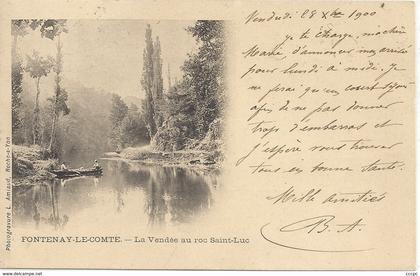 Vendredi 28 Xbre 1900
je te charge, ma chère
Marie d'annoncer mon arrivée
pour lundi à midi. Je
ne serai qu'en
afin de ne pas donner
trop d'embarras et
j'espère vous trouver
tous en bonne santé.
Mille amitiés
B. A.
Photogravure L. Amiaud, Roche-s-Yon
FONTENAY-LE-COMTE. — La Vendée au roc Saint-Luc